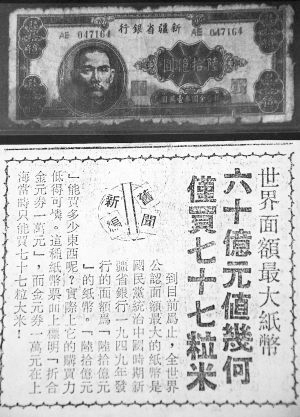 新疆省銀行
AE 047164
AE 047164
陸拾億圓
世界面額最大紙幣
六十億元值幾何
僅買七十七粒米
舊聞
新編
到目前爲止,全世界
公認面額最大的紙幣是
國民黨統治中國時期新
疆省銀行一九四九年發
行的面額爲「陸拾億元
」的紙幣。「陸拾億元
」能買多少東西呢?實際上它的購買力
低得可憐。這種紙幣票面上標明「折合
金元券一萬元」,而金元券一萬元在上
海當時只能買七十七粒大米!